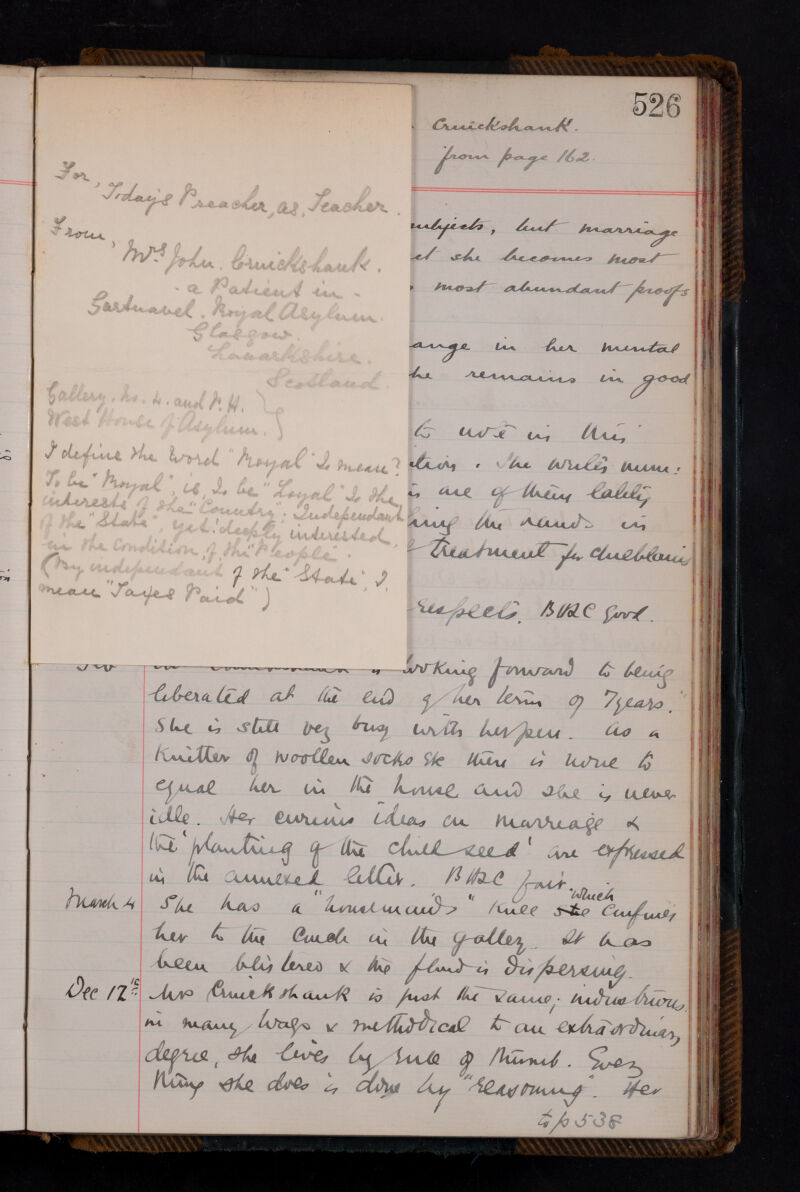 526
Cruickshank.
from page 162.
For, Today's Preacher, as, Teacher.
From, Mrs John. Cruickshank.
- a Patient in -
Gartnavel. Royal Asylum.
Glasgow.
Lanarkshire.
Scotland.
Gallery. No. 4. and
West House of Asylum.
I define the word "Royal" To mean?
To be "Royal" is, To be "Loyal" To the
interests of the "Country". Independant
of the "State", yet! deeply interested,
in the condition, of the "People".
(By independant of the "State", I.
mean "Taxes Paid")
subjects, but marriage
she becomes most
most abundant proofs
ange in her mental
he remains in good
to note in this
ation. She writes
are of them lately
the hands in
treatment for chilblains
respects. B H & C good.
is looking forward to being
liberated at the end of her term of 7 years."
She is still very busy with her pen. As a
Knitter of woollen socks etc there is none to
equal her in the house and she is never
idle. Her curious ideas on marriage &
the 'planting of the child seed' are expressed
in the annexed letter. B H & C fair.
March 4 She has a "housemaids" knee she which confines
her to the couch in the gallery. It has
been blistered & the fluid is dispersing.
Dec 12th Mrs Cruickshank is just the same; industrious
in many ways & methodical to an extraordinary
degree, she lives by rule of thumb. Every
thing she does is done by "reasoning". Her
to p 538